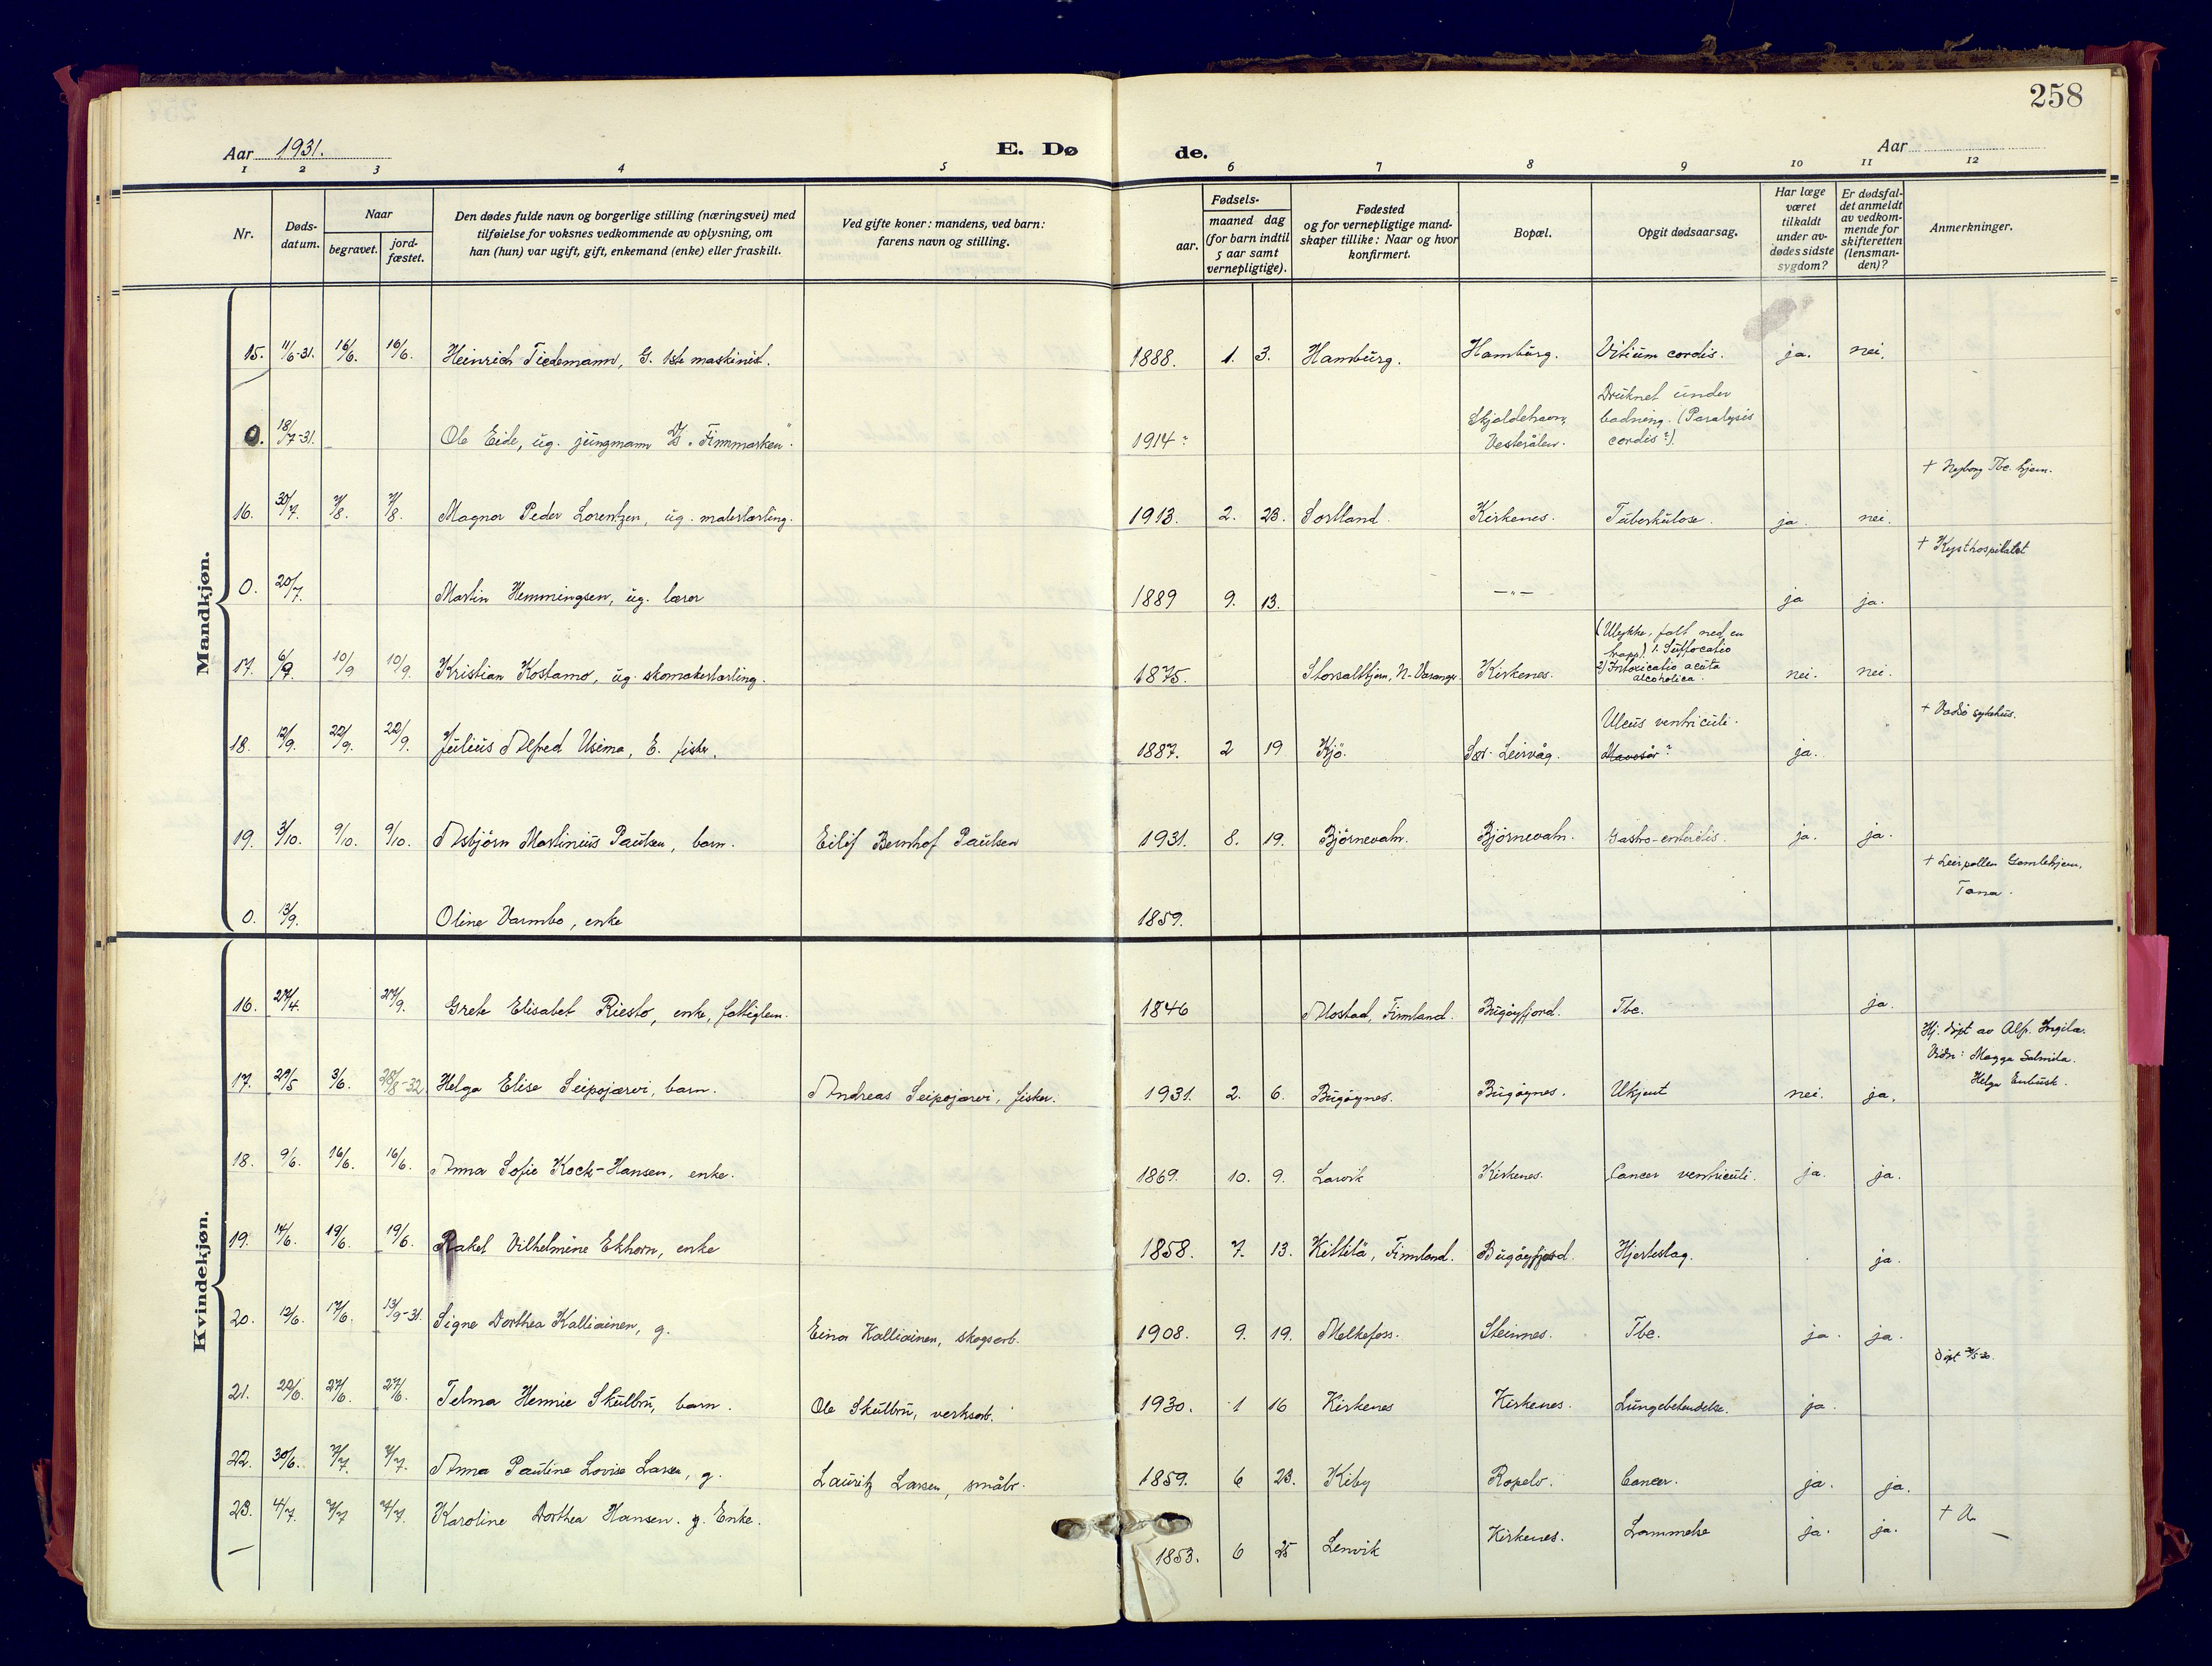 258
Aar 1931.
E. Dø
de.
Aar
1 2 3 4 5 6 7 8 9 10 11 12
Nr.
Døds-
datum.
Naar
begravet.
jord-
fæstet.
Den dødes fulde navn og borgerlige stilling (næringsvei) med
tilføielse for voksnes vedkommende av oplysning, om
han (hun) var ugift, gift, enkemand (enke) eller fraskilt.
Ved gifte koner: mandens, ved barn:
farens navn og stilling.
Fødsels-
aar.
maaned dag
(for barn indtil
5 aar samt
vernepligtige).
Fødested
og for vernepligtige mand-
skaper tillike: Naar og hvor
konfirmert.
Bopæl.
Opgit dødsaarsag.
Har læge
været
tilkaldt
under av-
dødes sidste
sygdom?
Er dødsfal-
det anmeldt
av vedkom-
mende for
skifteretten
(lensman-
den)?
Anmerkninger.
Mandkjøn.
15. 11/6-31. 16/6. 16/6. Heinrich Tiedemann, G. 1ste maskinist. 1888. 1. 3. Hamburg. Hamburg. Vitium cordis. ja. nei.
0. 18/7-31. Ole Eide, ug. jungmann D/S "Finnmarken". 1914? Skjoldehavn, Vesterålen. Druknet under
badning. (Paralysis
cordis?)
+ Nyborg Tbc. hjem.
16. 30/7. 7/8. 7/8. Magnor Peder Lorentzen, ug. malerlærling. 1913. 2. 23. Sortland. Kirkenes. Tuberkulose. ja. nei.
+ Kysthospitalet
0. 20/7. Martin Hemmingsen, ug. lærer 1889 9. 13. —"— ja ja.
17. 6/9. 10/9 10/9. Kristian Kostamo, ug. skomakerlærling. 1875. Storsaltbjern, N-Varanger Kirkenes. (Ulykke, falt ned en
trapp). 1. Suffocatio
2) Intoxicatio acuta
alcoholica. nei. nei.
+ Vadsø sykehus.
18. 12/9. 22/9. 22/9. Julius Alfred Usima, E. fisker. 1887. 2 19 Kjö. Sør-Leirvåg. Ulcus ventriculi.
Mavesår? ja.
19. 3/10. 9/10. 9/10. Asbjörn Martinius Paulsen, barn. Eilif Bernhof Paulsen 1931. 8. 19. Bjørnevatn. Bjørnevatn. Gastro-enteritis. ja. ja.
+ Leirpollen Gamlehjem,
Tana.
0. 13/9. Oline Varmbo, enke 1859.
Kvindekjøn.
16. 27/4. 27/9. Grete Elisabet Riesto, enke, fattiglem. 1846 Alostad, Finnland. Bugöyfjord. Tbc. ja.
Hj. döpt av Alfr. Ingila.
Vidn: Magga Salmila.
Helga Enbusk.
17. 29/5 3/6. 28/8-32. Helga Elise Seipojærvi, barn. Andreas Seipojærvi, fisker. 1931. 2. 6. Bugöynes. Bugöynes. Ukjent nei. ja.
18. 9/6. 16/6. 16/6. Anna Sofie Kock-Hansen, enke. 1869. 10. 9. Larvik Kirkenes. Cancer ventriculi. ja. ja.
19. 14/6. 19/6. 19/6. Rakel Vilhelmine Ekhorn, enke 1858. 7. 13. Kittilä, Finnland. Bugöyfjord. Hjerteslag. ja.
20. 12/6. 17/6. 13/9-31. Signe Dorthea Kalliainen, g. Einar Kalliainen, skogsarb. 1908. 9. 19. Melkefoss. Steinnes. Tbc. ja. ja.
21. 22/6. 27/6. 27/6. Telma Hennie Skulbru, barn. Ole Skulbru, verksarb. 1930. 1 16 Kirkenes Kirkenes. Lungebetendelse. ja.
22. 30/6. 7/7. 7/7. Anna Pauline Lovise Larsen, g. Lauritz Larsen, småbr. 1859. 6 23. Kiby Ropelv. Cancer. ja. ja.
23. 4/7. 7/7 7/7. Karoline Dorthea Hansen. g. Enke. 1853. 6 25 Lenvik Kirkenes. Lammelse ja. ja.